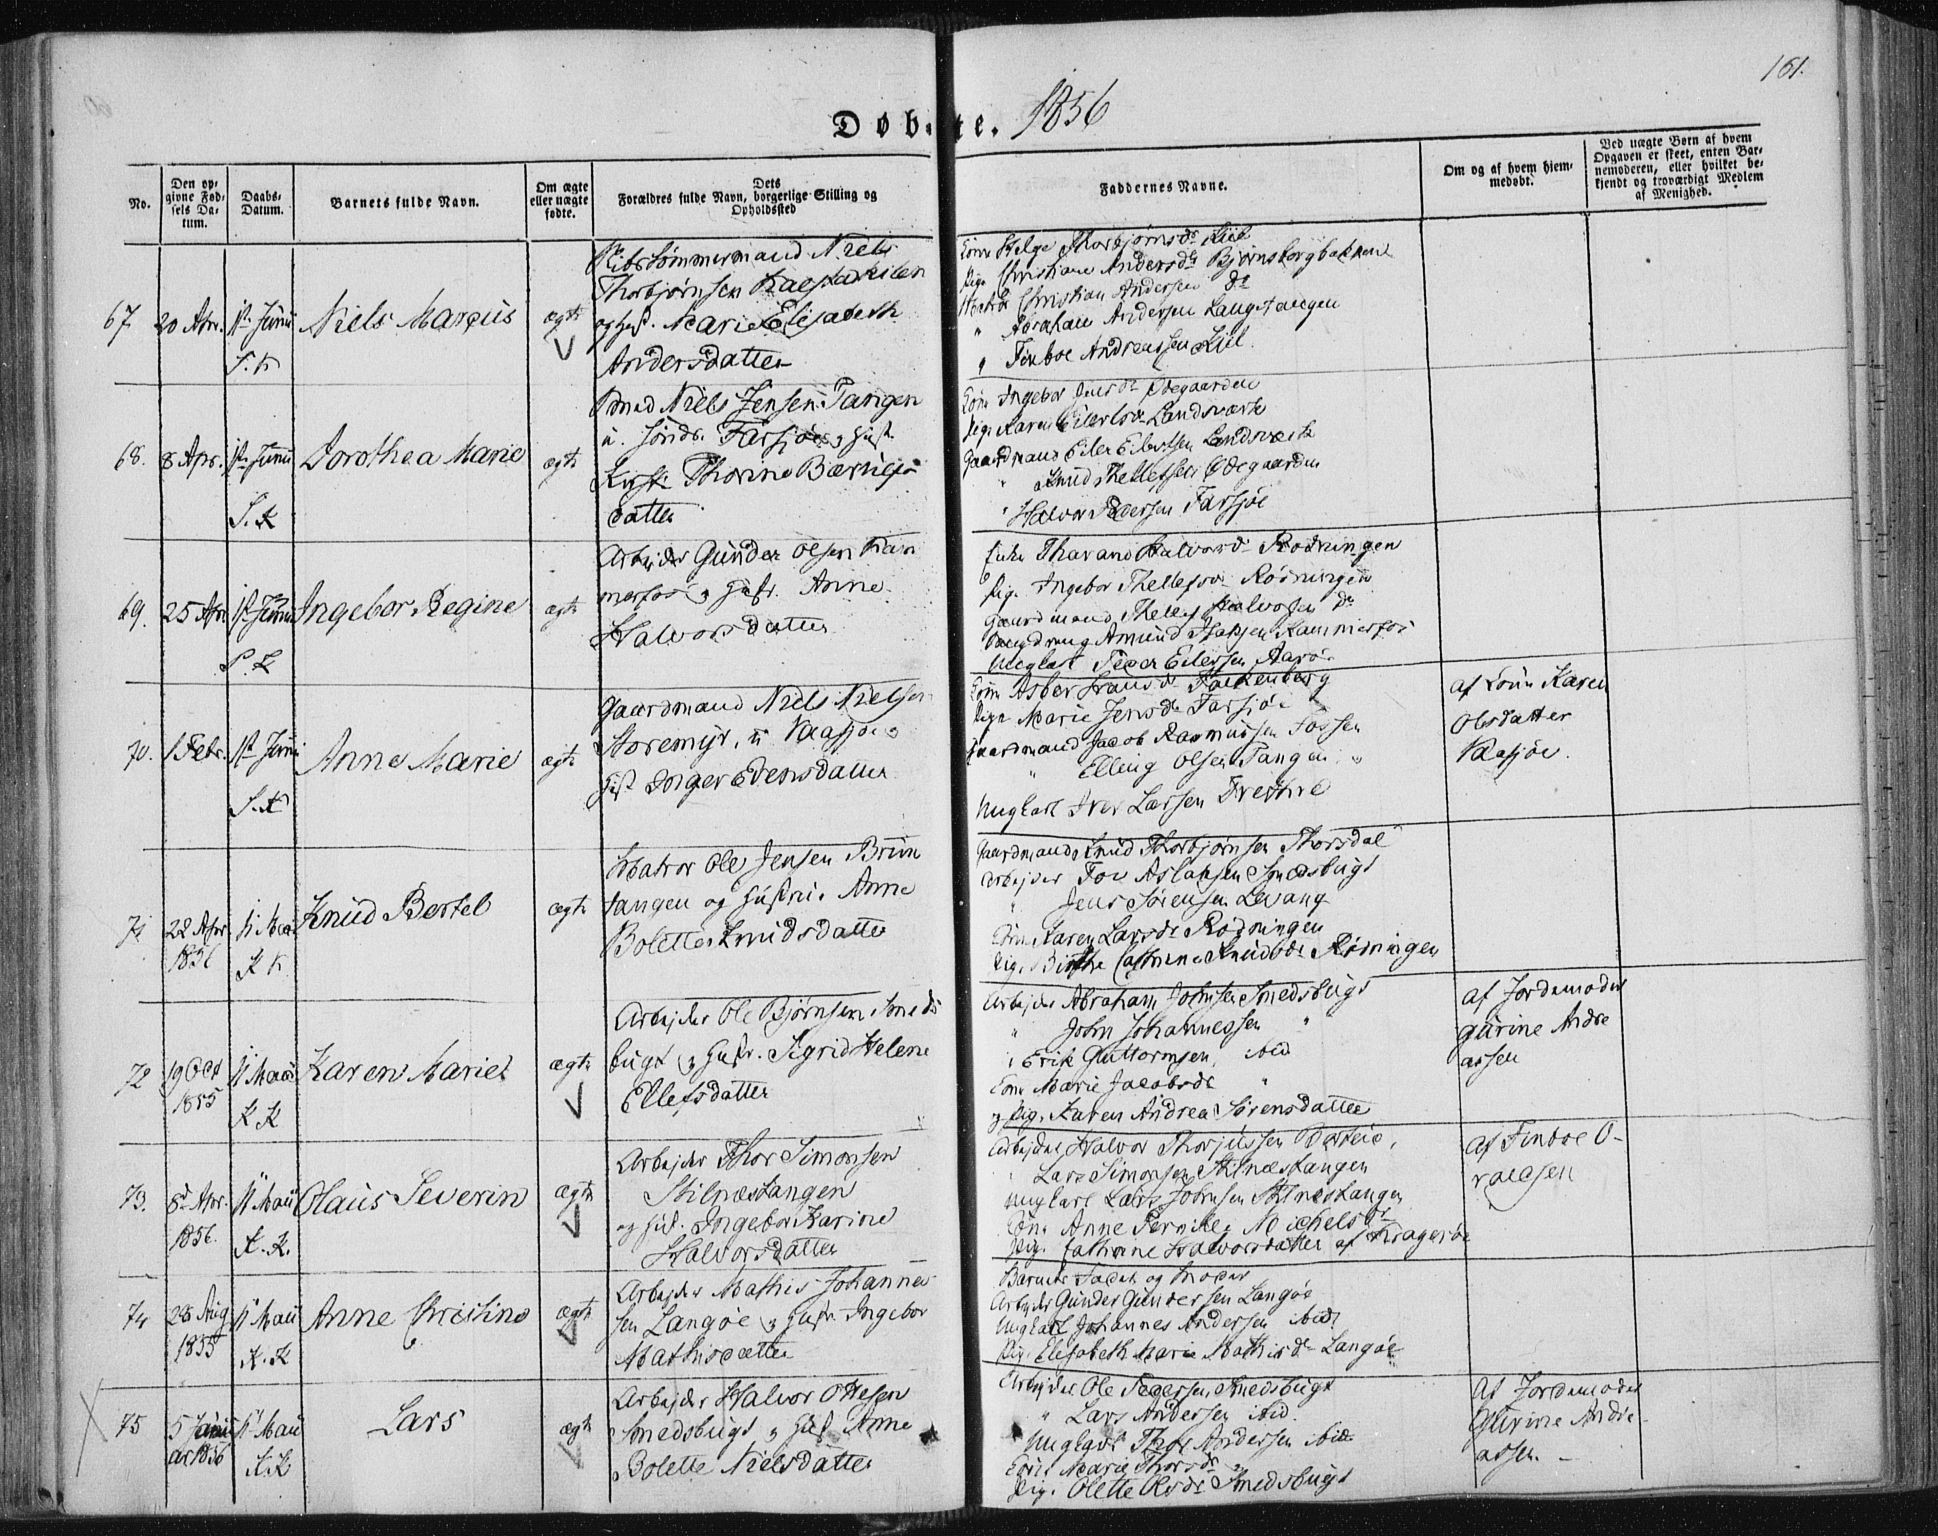 161.
Døbte. 1856
No.
Den op-
givne Fød-
sels Da-
tum.
Daabs-
Datum.
Barnets fulde Navn.
Om ægte
eller uægte
fødte.
Dets
Forældres fulde Navn, borgerlige Stilling og
Opholdssted
Faddernes Navne.
Om og af hvem hjem-
medøbt.
Ved uægte Børn af hvem
Opgaven er skeet, enten Bar-
nemoderen, eller hvilket be-
kjendt og troværdigt Medlem
af Menighed.
67
20 Apr.
1ste Juni
S. K
Niels Marcus
ægte
Skibstømmermand Niels
Thorbjørnsen
og Hust. Marie Elisabeth
Andersdatter
Kone Helge Thorbjørnsdr Kiil
Pige Christiane Andersdr Bjørnsborgbakkene
Christian Andersen do
" Abraham Andersen Langetangen
" Finboe Andreassen Kiil.
68.
8 Apr.
1ste Juni
S. K
Dorothea Marie
ægte
Niels Jensen Tangen
u. søndr. Farsjøe og Hust.
Thorine
datter
Kone Ingebor Jensdr Ødegaarden
Pige Karen Eilertsdr Landsværk
Gaardmand Eiler Eilertsen Landsværk
" Knud Thellefsen Ødegaarden
" Halvor Pedersen Farsjøe
69.
25 Apr
1ste Juni
S. K
Ingebor Regine
ægte
Arbejder Gunder Olsen Kam
merfos og Hustr. Anne
Halvorsdatter
Enke Tharand Halvorsdr Rødningen
Pige Ingebor Thellefsdr Rødningen
Gaardmand Thellef Halvorsen do
Amund Isaksen Kammerfos
Ungkarl Peder Eilersen Aarøe
70.
1 Febr.
1ste Juni
S. K
Anne Marie
ægte
Gaardmand Niels Nielsen
Storemyr, u Vaasjøe og
Hust Inger Evensdatter
Kone Asber Fransdr Falkenberg
Pige Marie Jensdr Farsjøe
Gaardmand Jacob Rasmussen Fossen
" Elling Olsen Tangen "
Ungkarl Iver Larsen
af Kone Karen
Olsdatter
Vaasjøe.
71
22 Apr
1856
11 Mai
K K
Knud Bertel
ægte
Matros Ole Jensen Brun
tangen og Hustrue Anne
Bolette Knudsdatter
Gaardmand Knud Thorbjørnsen Thorsdal
Arbejder Tov Aslaksen Smedsbugt
" Jens Sørensen Levang
Kone Karen Larsdr Rødningen
Pige Birthe Cathrine Knudsdr Rødningen
72
19 Oct
1855
11 Mai
K K
Karen Marie
ægte
Arbejder Ole Bjørnsen Smeds
bugt og Hustr. Sigrid Helene
Ellefsdatter
Arbejder Abraham Johnsen Smedsbugt
" John Johannessen "
" Erik Guttormsen ibid
Kone Marie Jacobsdr "
og Pige Karen Andrea Sørensdatter
af Jordemoder
Gurine Andre
assen
73.
8d Apr.
1856.
11 Mai
K. K.
Olaus Severin
ægte
Arbejder Thor Simonsen
Stilnæstangen
og Hust. Ingebor Karine
Halvorsdatter
Arbejder Halvor Thorjussen
" Lars Simonsen Stilnæstangen
Ungkarl Lars Johnsen Stilnæstangen
Kone Anne Pernille Michelsdr
Pige Cathrine Halvorsdatter af Kragerøe
af Finboe O-
raldsen
74
28 Aug
1855
11 Mai
K. K
Anne Christine
ægte
Arbejder Mathis Johanne-
sen Langøe og Hustr. Ingebor
Mathisdatter
Barnets Fader og Moder
Arbejder Gunder Gundersen Langøe
Ungkarl Johannes Andersen ibid
Pige Elisabeth Marie Mathisdr Langøe
75
5 Janu
ar 1856
11 Mai
K. K
Lars
ægte
Arbejder Halvor Ottesen
Smedsbugt og Hust Anne
Bolette Nielsdatter
Arbejder Ole Pedersen Smedsbugt
" Lars Andersen ibid.
Ungkarl Thor Andersen ibid
Kone Marie Thorsdr "
Pige Olette Olsdr Smedsbugt
Af Jordemoder
Gurine Andre-
assen. -